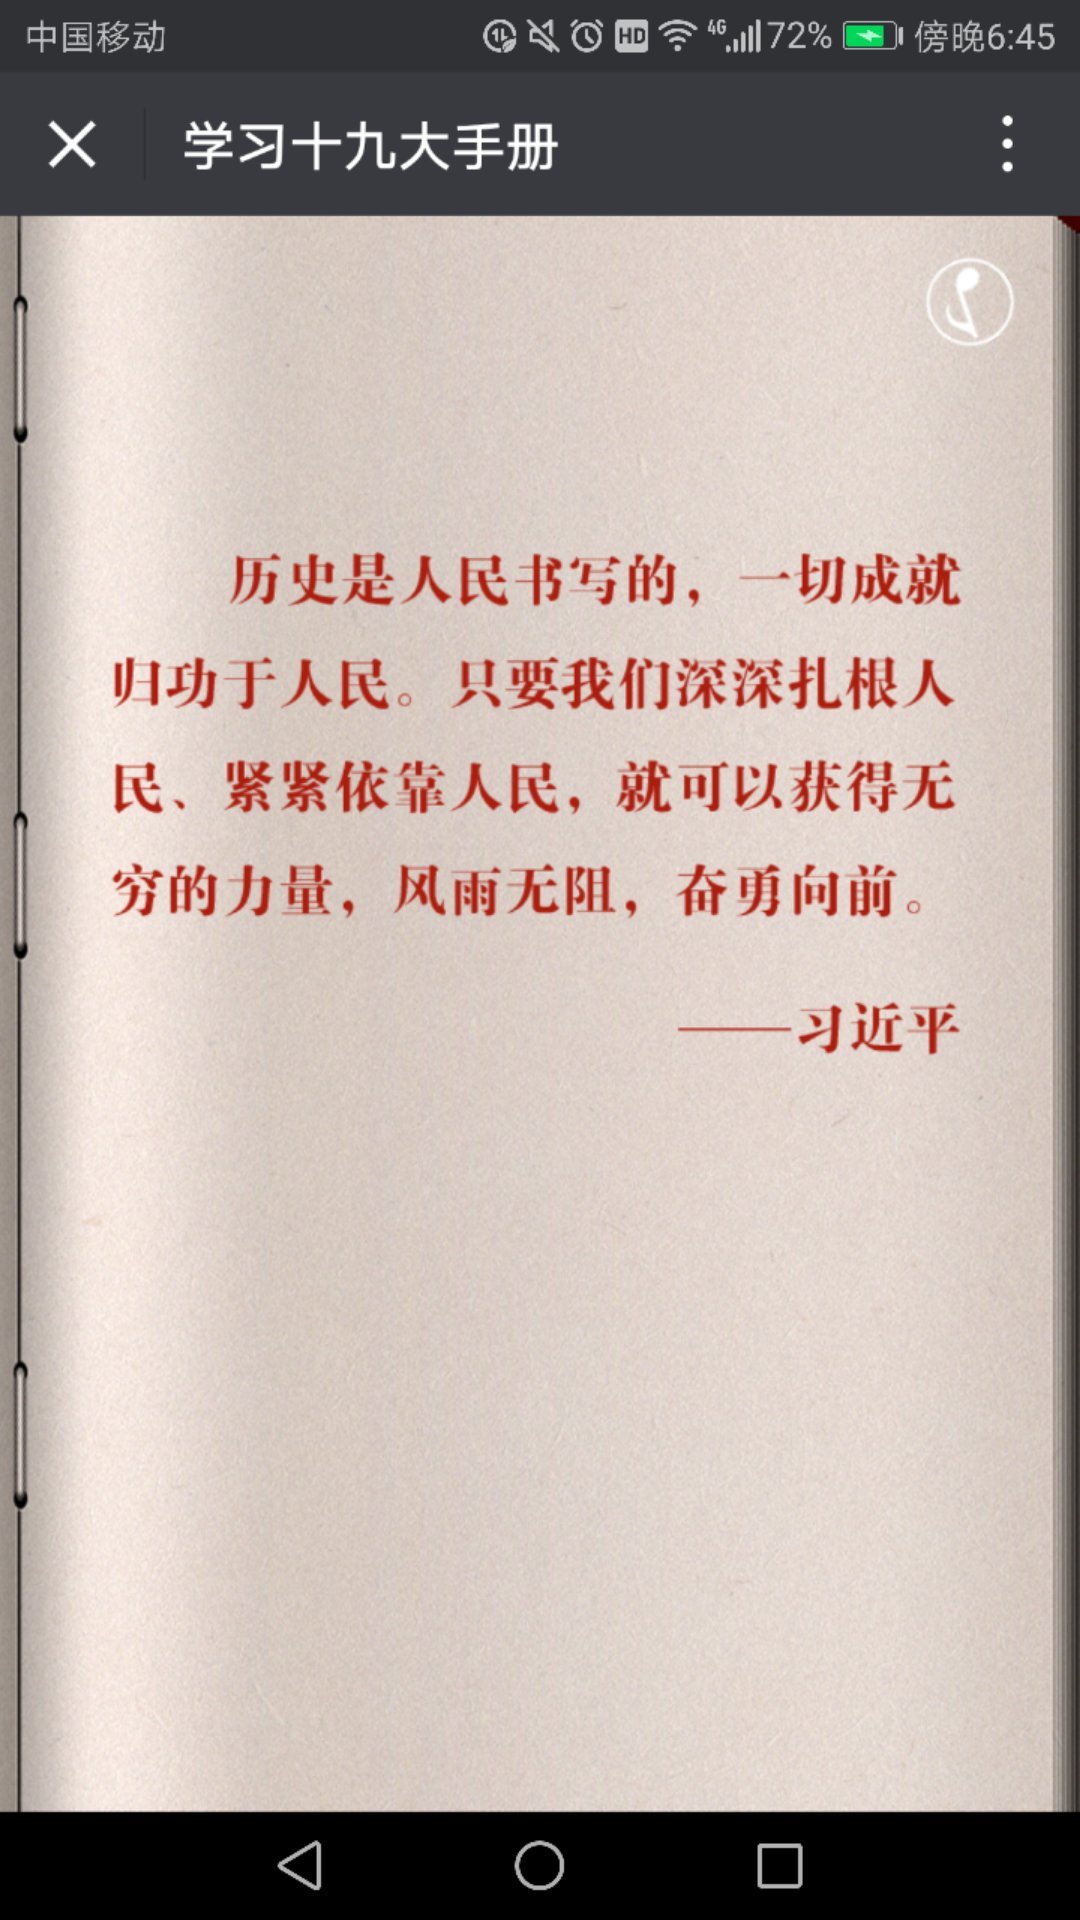 中国移动 HD 4G 72% 傍晚6:45
学习十九大手册
历史是人民书写的，一切成就
归功于人民。只要我们深深扎根人
民、紧紧依靠人民，就可以获得无
穷的力量，风雨无阻，奋勇向前。
——习近平